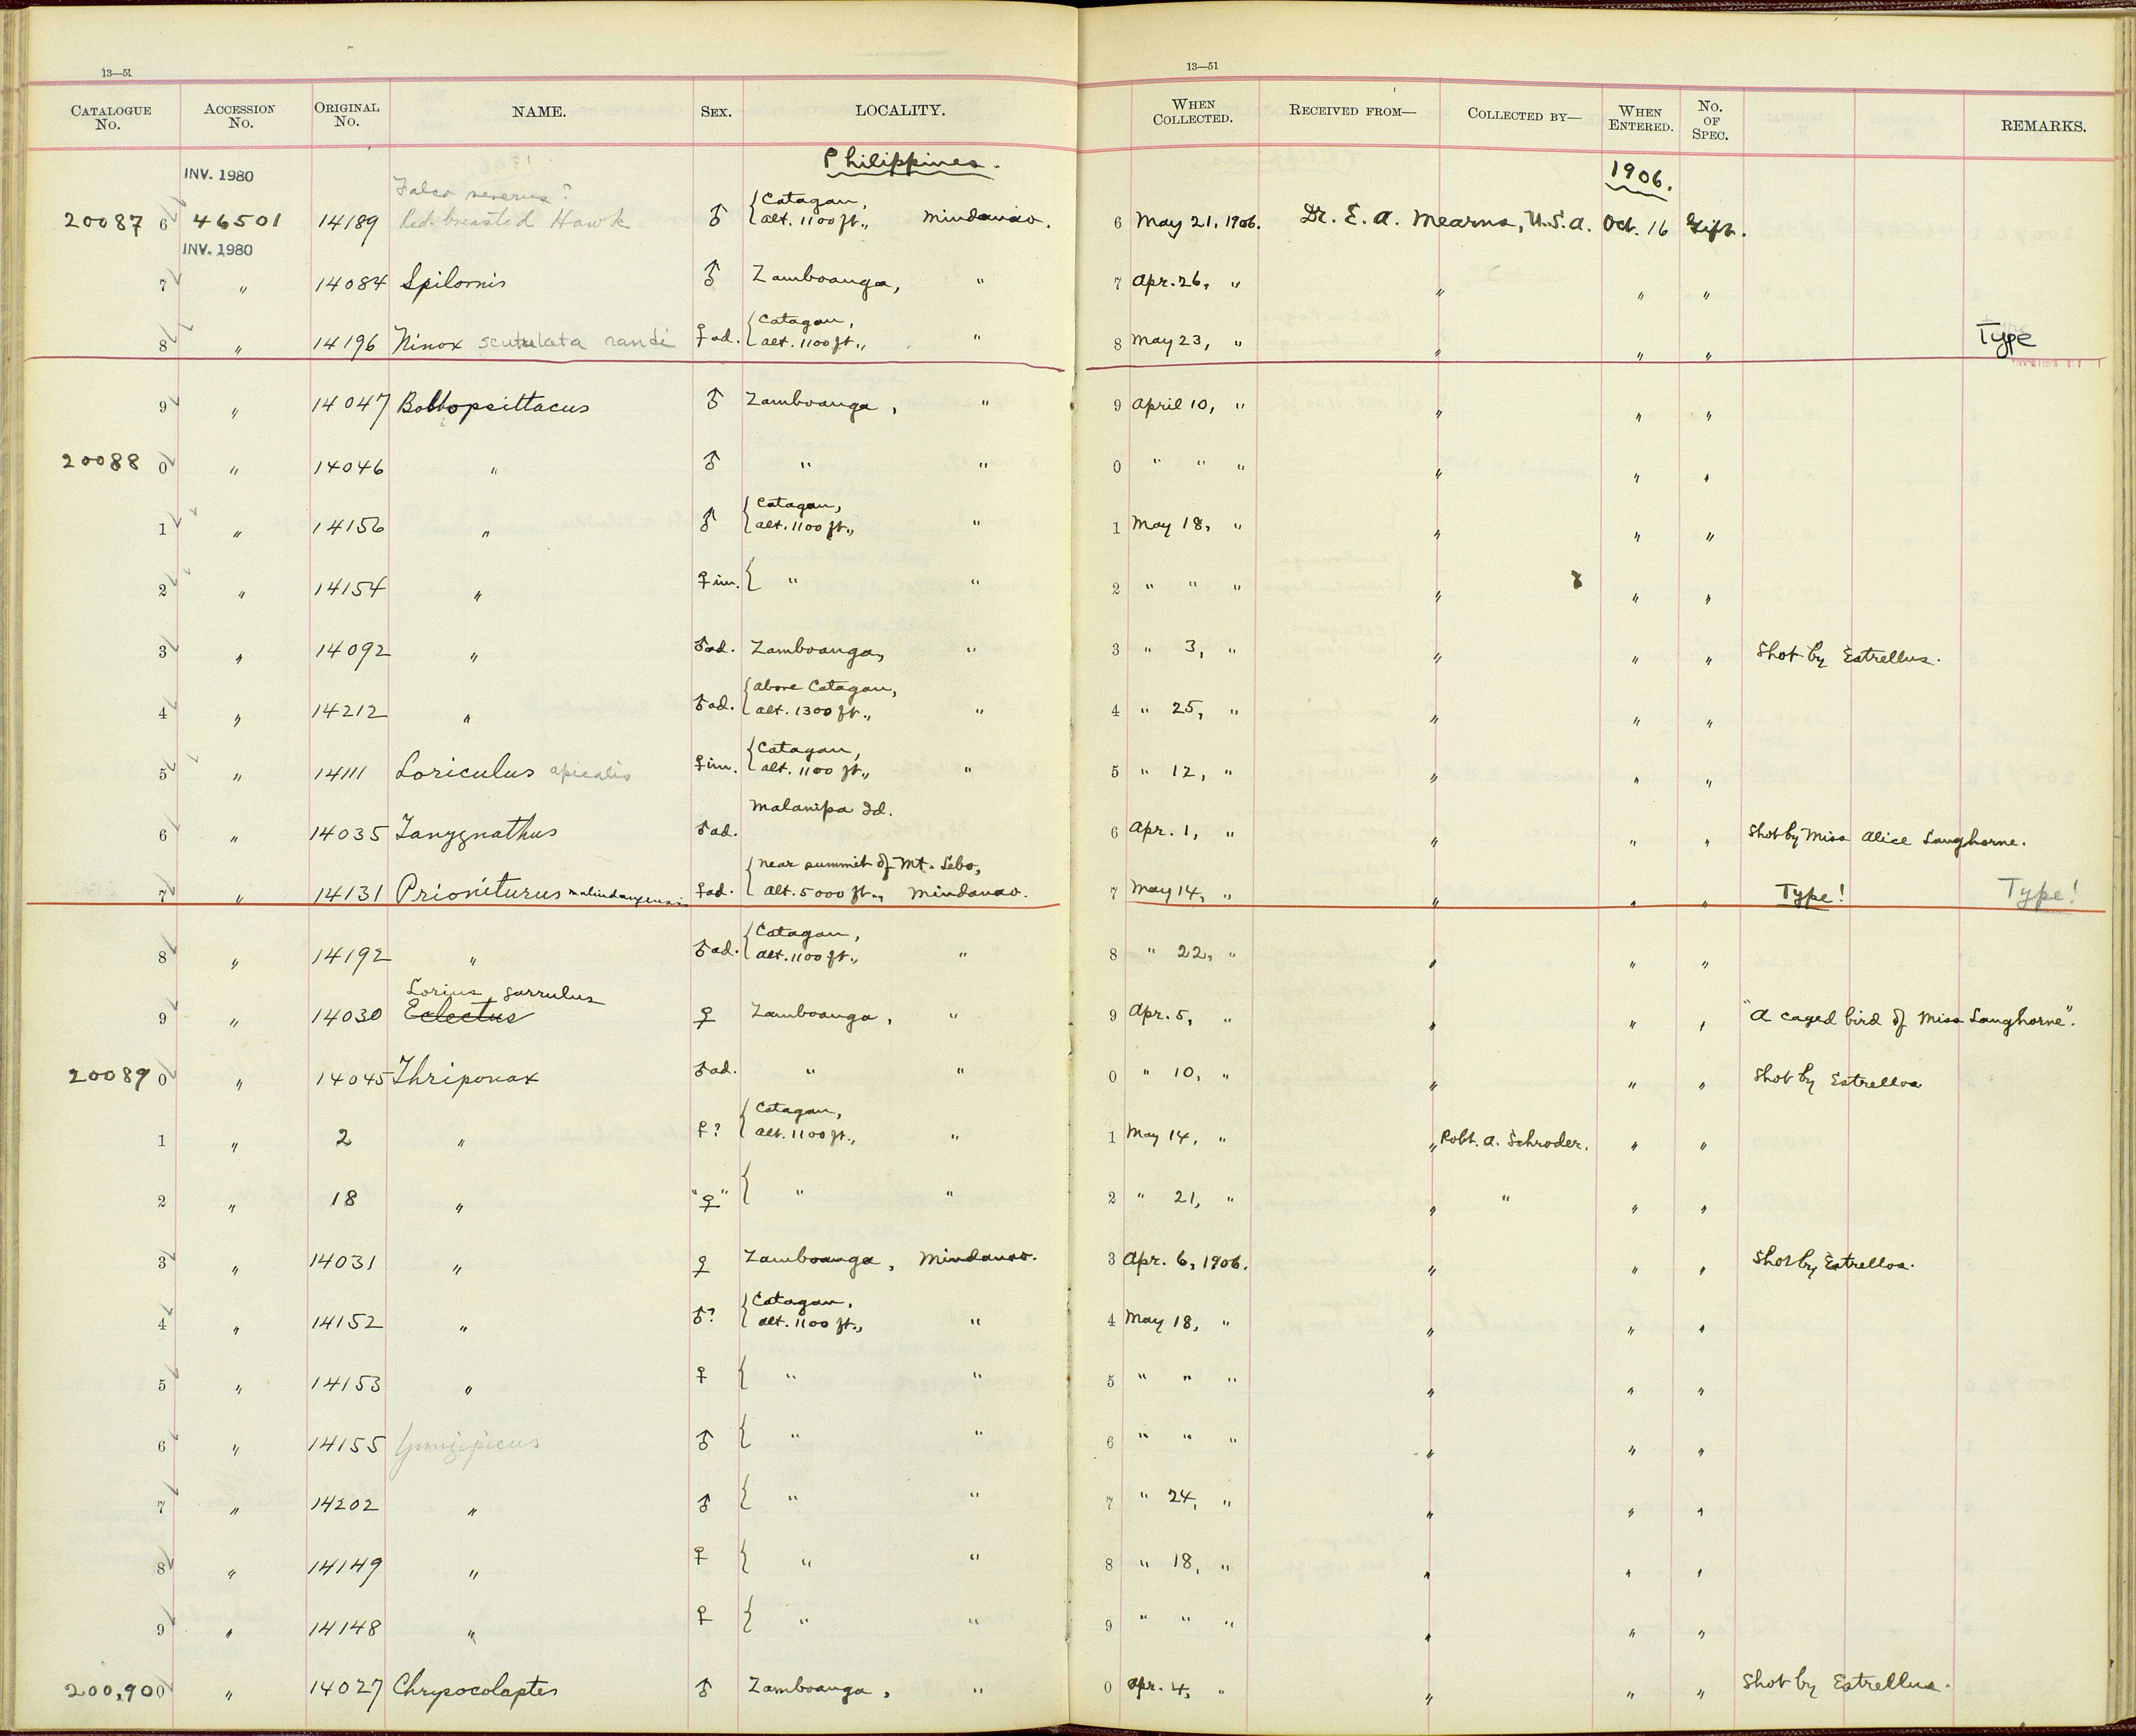 13—51 13—51
CATALOGUE No. ACCESSION No. ORIGINAL No. NAME. SEX. LOCALITY. WHEN COLLECTED. RECEIVED FROM— COLLECTED BY— WHEN ENTERED. No. OF SPEC. REMARKS.
Philippines. 1906.
INV. 1980
Falco severus?
20087 6 46501 14189 Red-breasted Hawk ♂ {Catagan, alt. 1100 ft., Mindanao. 6 May 21, 1906. Dr. E. A. Mearns, U.S.A. Oct. 16 Gift.
INV. 1980
7 " 14084 Spilornis ♂ Zamboanga, " 7 Apr. 26, " " " "
8 " 14196 Ninox scutulata randi ♀ ad. {Catagan, alt. 1100 ft., " 8 May 23, " " " " Type
9 " 14047 Bolbopsittacus ♂ Zamboanga, " 9 April 10, " " " "
20088 0 " 14046 " ♂ " " 0 " " " " " "
1 " 14156 " ♂ {Catagan, alt. 1100 ft., " 1 May 18, " " " "
2 " 14154 " ♀ im. { " " 2 " " " " " "
3 " 14092 " ♂ ad. Zamboanga, " 3 " 3, " " " " Shot by Estrellus.
4 " 14212 " ♂ ad. {above Catagan, alt. 1300 ft., " 4 " 25, " " " "
5 " 14111 Loriculus apicalis ♀ im. {Catagan, alt. 1100 ft., " 5 " 12, " " " "
6 " 14035 Tanygnathus ♂ ad. Malanipa Id. 6 Apr. 1, " " " " Shot by Miss Alice Langhorne.
7 " 14131 Prioniturus malindangensis ♀ ad. {near summit of Mt. Lebo, alt. 5000 ft., Mindanao. 7 May 14, " " " " Type! Type!
8 " 14192 " ♂ ad. {Catagan, alt. 1100 ft., " 8 " 22, " " " "
Lorius garrulus
9 " 14030 Eclectus ♀ Zamboanga, " 9 Apr. 5, " " " " "A caged bird of Miss Langhorne".
20089 0 " 14045 Thriponax ♂ ad. " " 0 " 10, " " " " Shot by Estrellos
1 " 2 " ♀? {Catagan, alt. 1100 ft., " 1 May 14, " " Robt. A. Schroder. " "
2 " 18 " "♀" { " " 2 " 21, " " " " "
3 " 14031 " ♀ Zamboanga, Mindanao. 3 Apr. 6, 1906. " " " Shot by Estrellos.
4 " 14152 " ♂? {Catagan, alt. 1100 ft., " 4 May 18, " " " "
5 " 14153 " ♀ { " " 5 " " " " " "
6 " 14155 Yungipicus ♂ { " " 6 " " " " " "
7 " 14202 " ♂ { " " 7 " 24, " " " "
8 " 14149 " ♀ { " " 8 " 18, " " " "
9 " 14148 " ♀ { " " 9 " " " " " "
200,90 0 " 14027 Chrysocolaptes ♂ Zamboanga, " 0 Apr. 4, " " " " Shot by Estrellus.